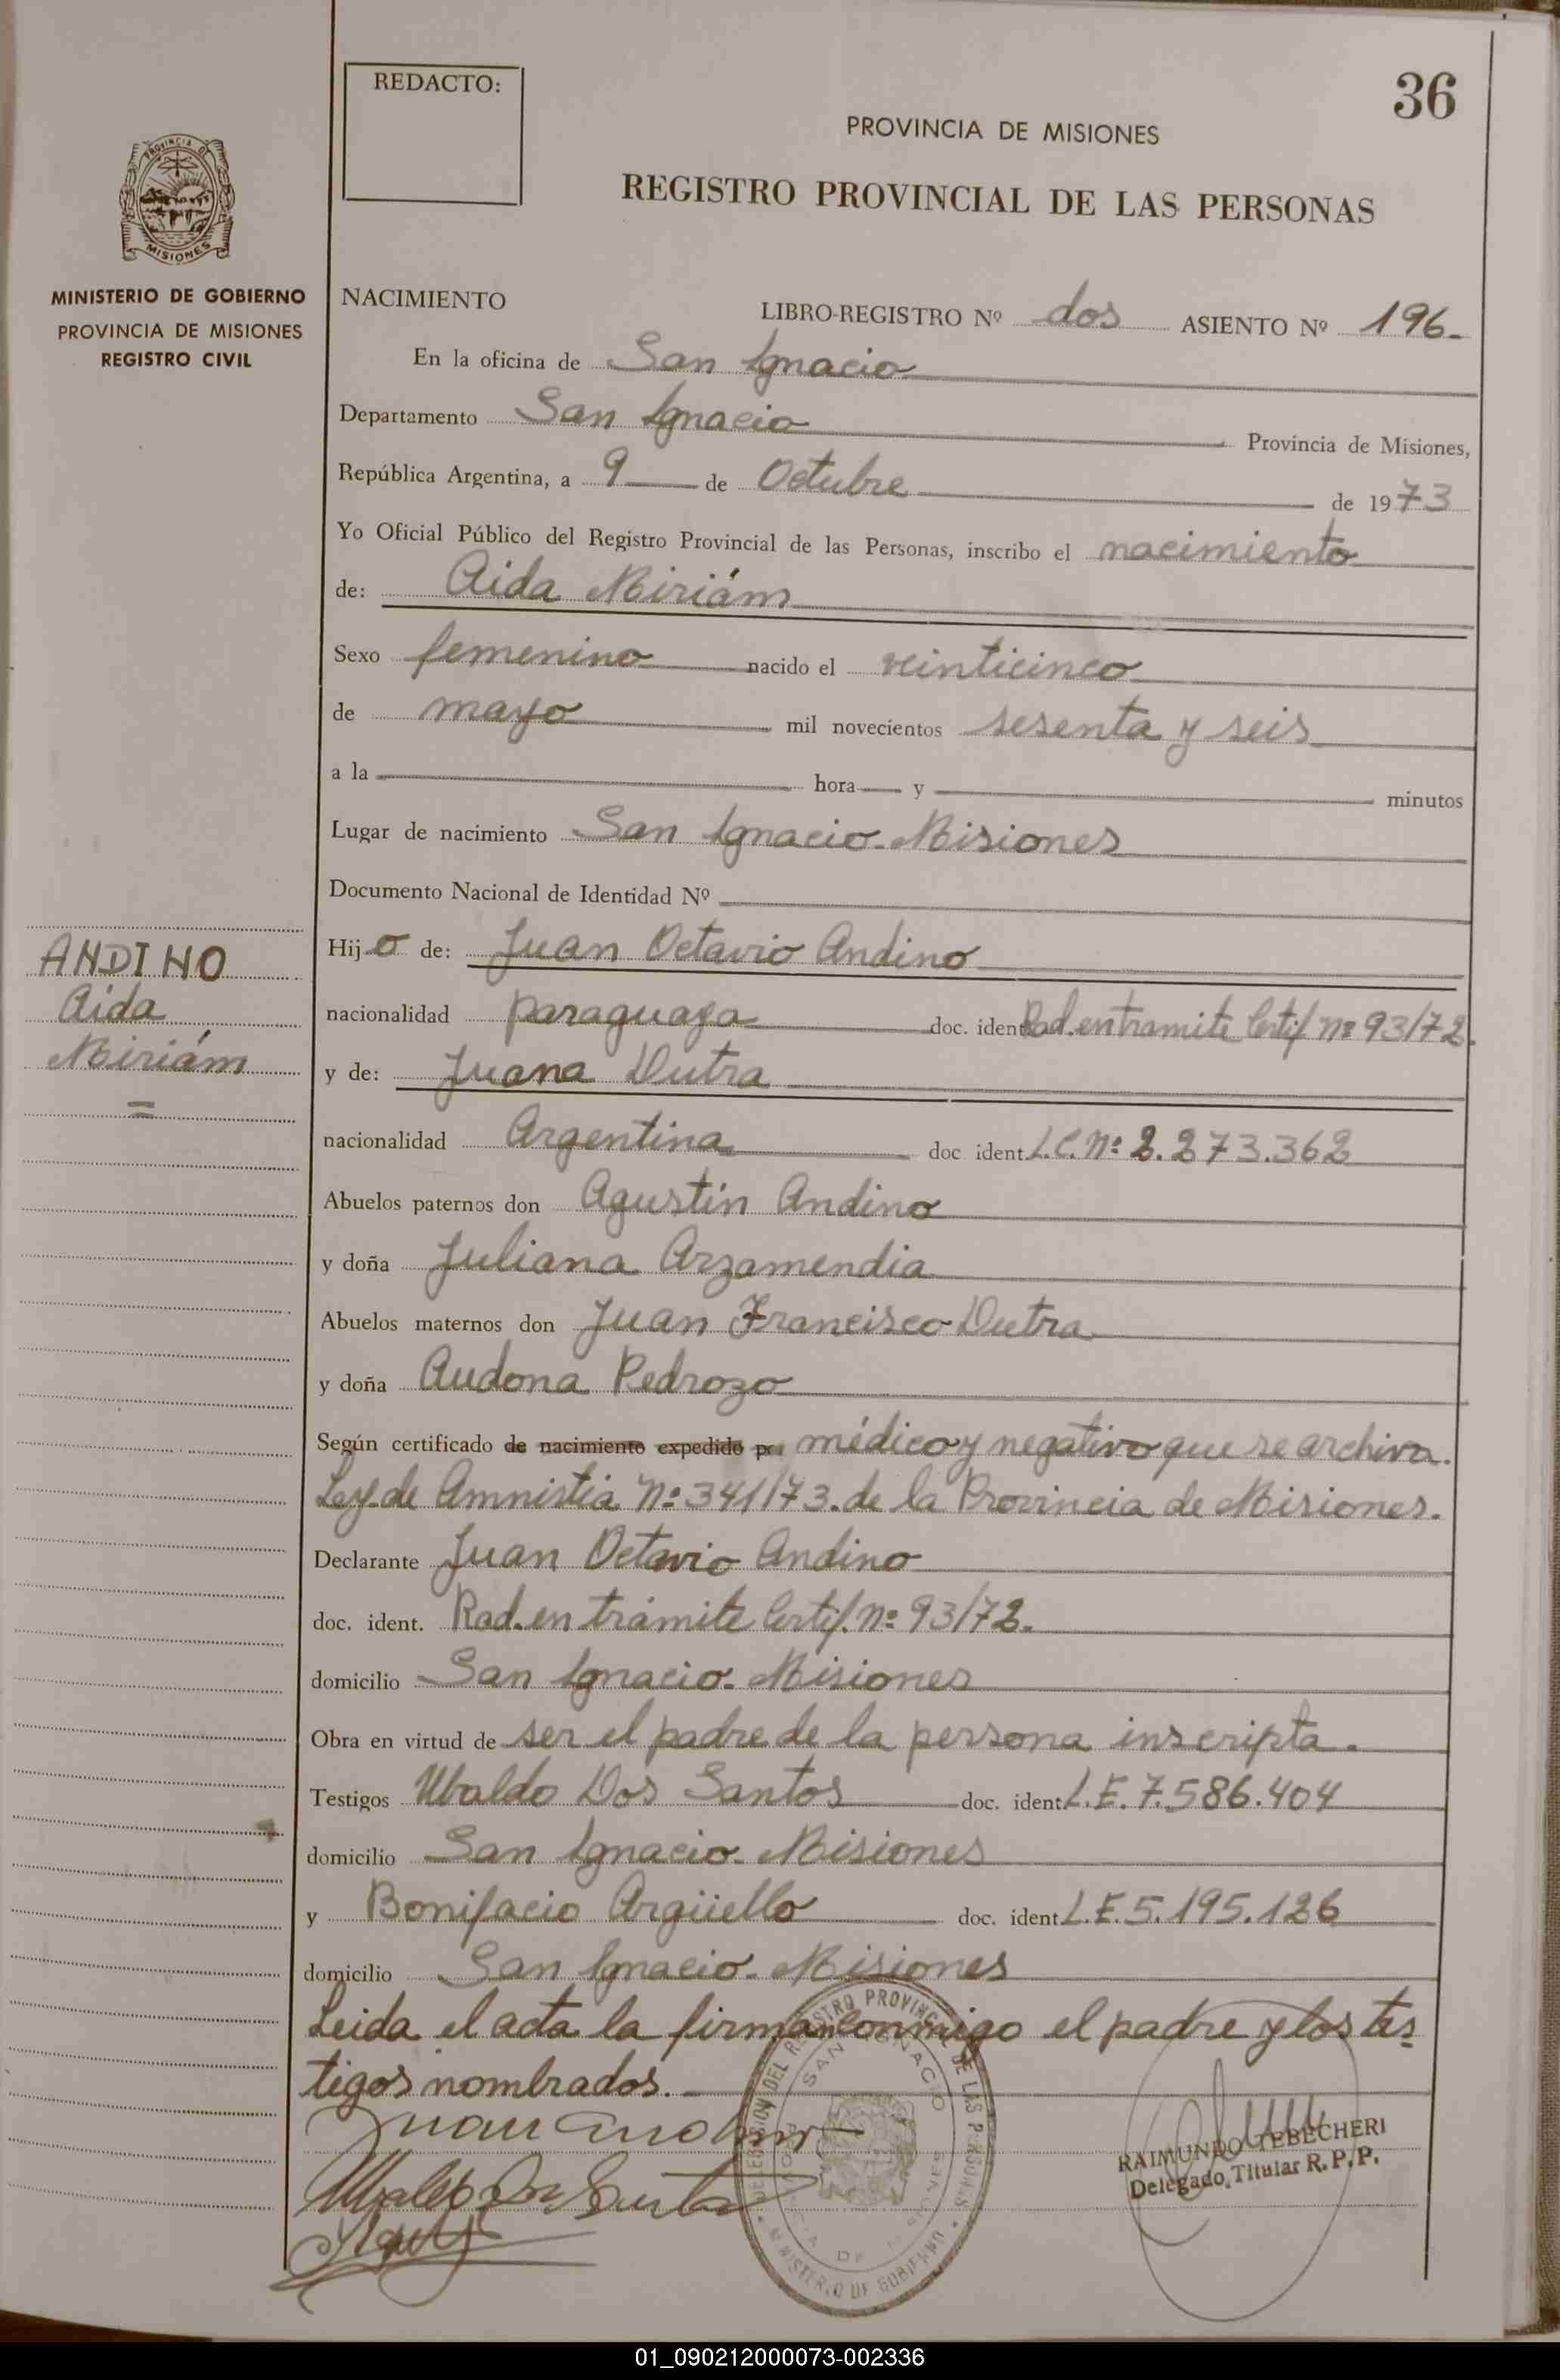 REDACTO:
36
PROVINCIA DE MISIONES
REGISTRO PROVINCIAL DE LAS PERSONAS
PROVINCIA DE
MISIONES
MINISTERIO DE GOBIERNO
PROVINCIA DE MISIONES
REGISTRO CIVIL
NACIMIENTO LIBRO-REGISTRO Nº dos ASIENTO Nº 196.-
En la oficina de San Ignacio
Departamento San Ignacio Provincia de Misiones,
República Argentina, a 9 de Octubre de 1973
Yo Oficial Público del Registro Provincial de las Personas, inscribo el nacimiento
de: Aida Miriám
Sexo femenino nacido el veinticinco
de mayo mil novecientos sesenta y seis
a la hora y minutos
Lugar de nacimiento San Ignacio-Misiones
Documento Nacional de Identidad Nº
ANDINO
Aida
Miriám
=
Hijo de: Juan Octavio Andino
nacionalidad paraguaya doc. ident Rad. en tramite Certif. nº 93/72.
y de: Juana Dutra
nacionalidad Argentina doc ident. L.C. Nº 2.273.362
Abuelos paternos don Agustín Andino
y doña Juliana Arzamendia
Abuelos maternos don Juan Francisco Dutra
y doña Audona Pedrozo
Según certificado de nacimiento expedido por médico y negativo que se archiva.
Ley de Amnistía Nº 341/73. de la Provincia de Misiones.
Declarante Juan Octavio Andino
doc. ident. Rad. en trámite Certif. nº 93/72.
domicilio San Ignacio-Misiones
Obra en virtud de ser el padre de la persona inscripta.
Testigos Ubaldo Dos Santos doc. ident. L.E. 7.586.404
domicilio San Ignacio-Misiones
y Bonifacio Argüello doc. ident L.E. 5.195.126
domicilio San Ignacio-Misiones
Leida el acta la firman conmigo el padre y los tes-
tigos nombrados.
Juan Andino
Ubaldo Dos Santos
DEL REGISTRO PROVINCIAL DE LAS PERSONAS
SAN IGNACIO
MINISTERIO DE GOBIERNO
RAIMUNDO TEBECHERI
Delegado Titular R.P.P.
01_090212000073-002336